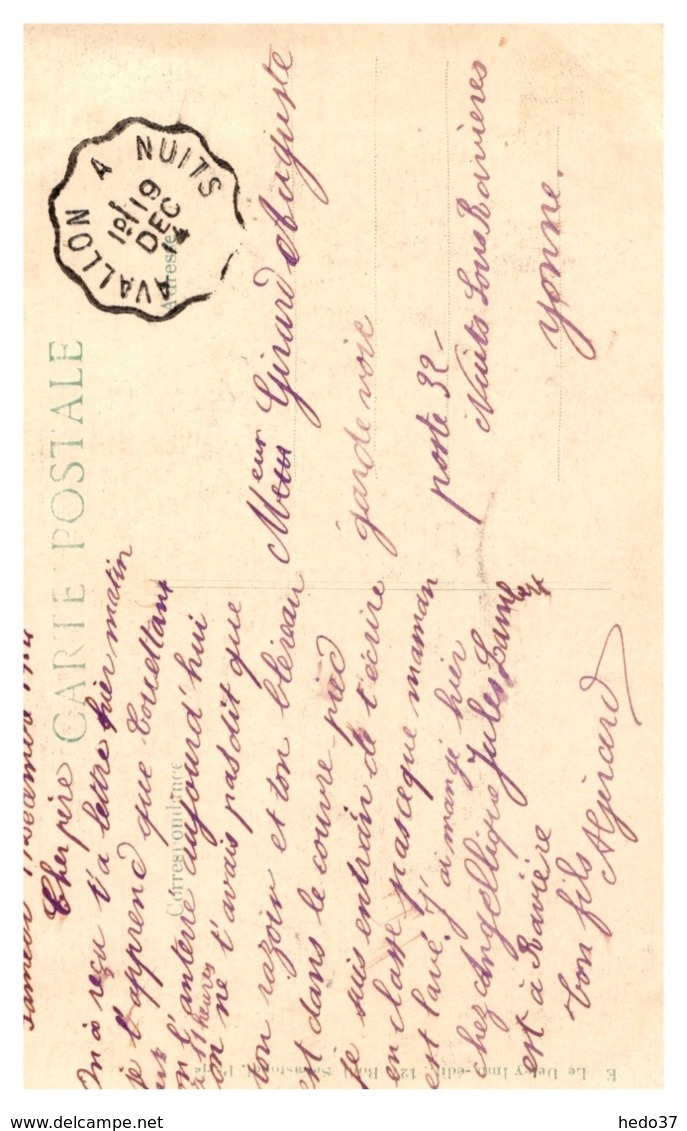 CARTE POSTALE
Correspondance
Adresse
AVALLON A NUITS
19
DEC
14
Cher père
On a reçu t'a lettre hier matin
je t'apprend que
on l'anterre aujourd'hui
a 11 heures
on ne t'avais pas dit que
ton razoir et ton bléreau
est dans le couvre-pied
je suis entrain de t'écrire
en classe pasceque maman
est lavé. J'ai mangé hier
chez Angellique Jules
est à Ravière
ton fils AGirard
Meur Girard Auguste
garde voie
poste 32-
Nuits sous Ravieres
Yonne.
E. Le Deley Imp.-édit., 127, Boul. Sébastopol, Paris
hedo37